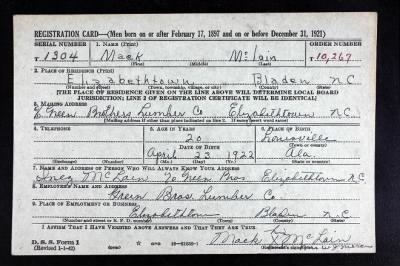 REGISTRATION CARD—(Men born on or after February 17, 1897 and on or before December 31, 1921)
SERIAL NUMBER 1. NAME (Print) ORDER NUMBER
T 1304 Mack McLain T 10,267
(First) (Middle) (Last)
2. PLACE OF RESIDENCE (Print)
Elizabethtown Bladen N.C
(Number and street) (Town, township, village, or city) (County) (State)
[THE PLACE OF RESIDENCE GIVEN ON THE LINE ABOVE WILL DETERMINE LOCAL BOARD
JURISDICTION; LINE 2 OF REGISTRATION CERTIFICATE WILL BE IDENTICAL]
3. MAILING ADDRESS
Green Brothers Lumber Co Elizabethtown N.C.
[Mailing address if other than place indicated on line 2. If same insert word same]
4. TELEPHONE 5. AGE IN YEARS 6. PLACE OF BIRTH
20 Louisville
DATE OF BIRTH (Town or county)
April 23 1922 Ala.
(Exchange) (Number) (Mo.) (Day) (Yr.) (State or country)
7. NAME AND ADDRESS OF PERSON WHO WILL ALWAYS KNOW YOUR ADDRESS
Inez McLain % Green Bros Elizabethtown N.C
8. EMPLOYER'S NAME AND ADDRESS
Green Bros. Lumber Co.
9. PLACE OF EMPLOYMENT OR BUSINESS
Elizabethtown Bladen N.C
(Number and street or R. F. D. number) (Town) (County) (State)
I AFFIRM THAT I HAVE VERIFIED ABOVE ANSWERS AND THAT THEY ARE TRUE.
D. S. S. Form 1
(Revised 1-1-42) Mack McLain